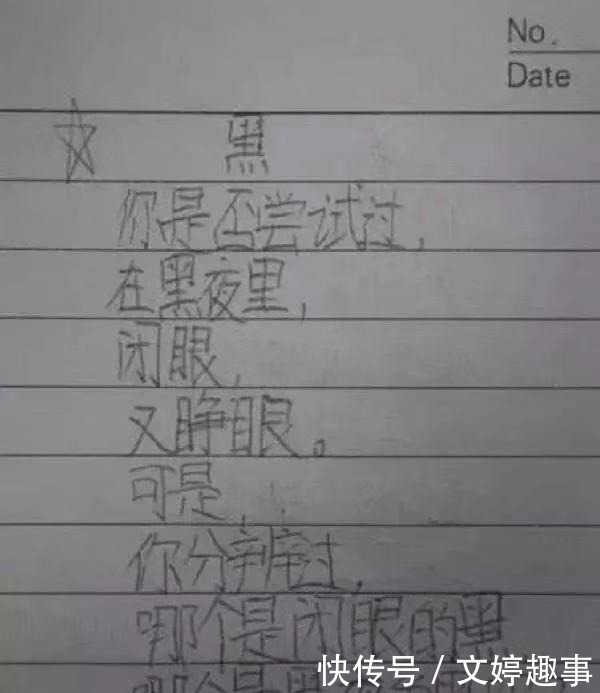 No.
Date
黑
你是否尝试过,
在黑夜里,
闭眼,
又睁眼。
可是,
你分辨过,
哪个是闭眼的黑
哪个是睁
快传号 / 文婷趣事